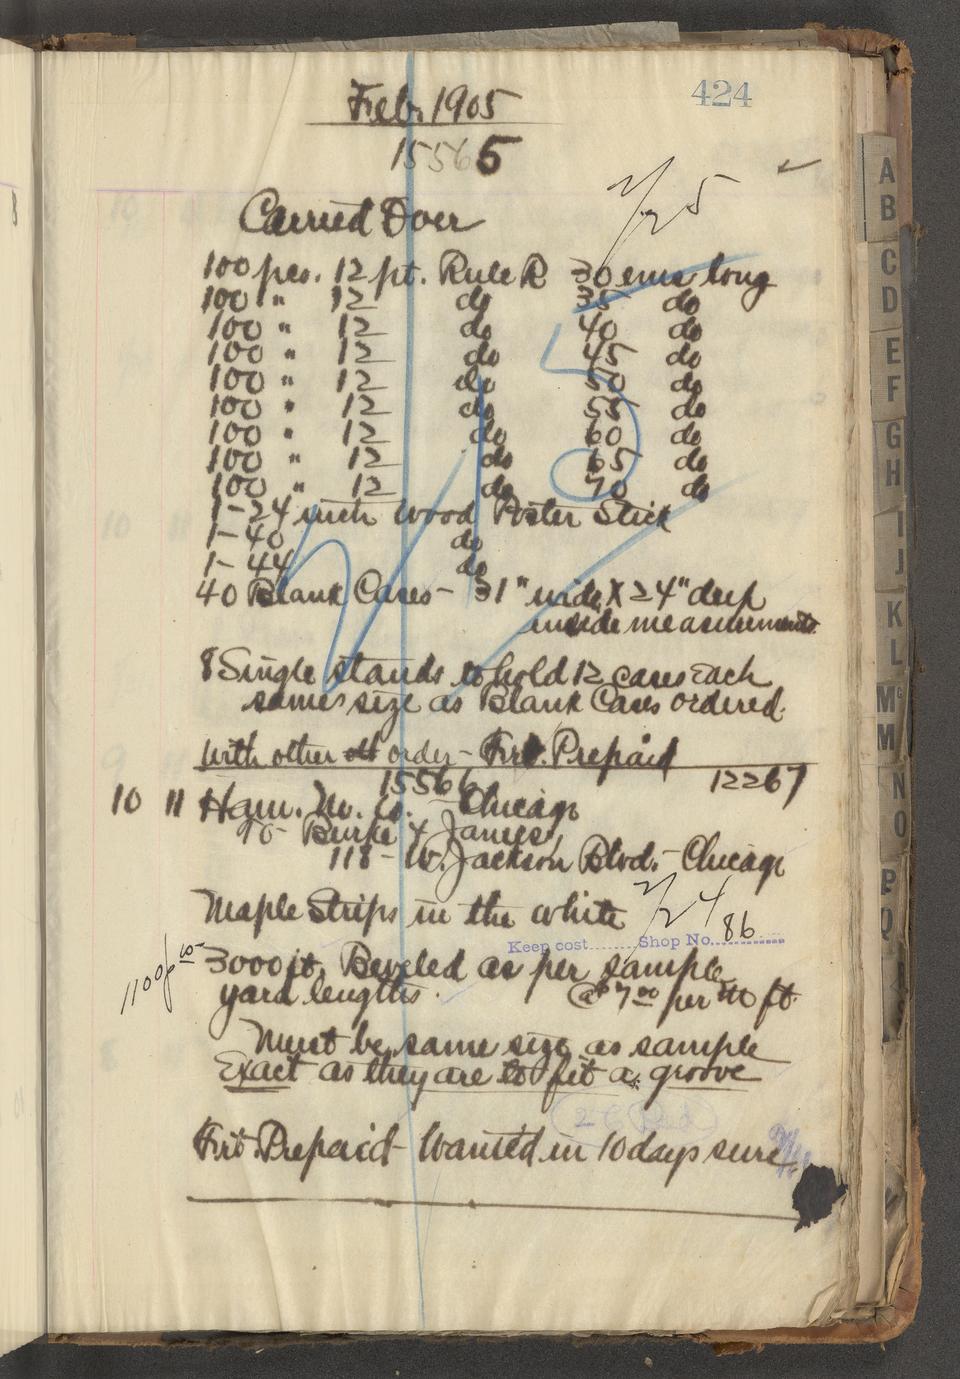 424
Feb. 1905
15565
2/25
Carried Over
100 pcs. 12 pt. Rule R 30 ems long
100 " 12 do 35 do
100 " 12 do 40 do
100 " 12 do 45 do
100 " 12 do 50 do
100 " 12 do 55 do
100 " 12 do 60 do
100 " 12 do 65 do
100 " 12 do 70 do
1-24 inch Wood Poster Stick
1-40 do
1-44 do
40 Blank Cases - 31" wide X 24" deep
inside measurements
8 Single stands to hold 12 cases each
same size as Blank Cases ordered.
With other order - Frt. Prepaid
15566 12267
10 11 Ham. M. Co. - Chicago
% - Burke & James,
118 - W. Jackson Blvd. - Chicago
Maple Strips in the white 2/24
Keep cost Shop No. 86
3000 ft. Beveled as per sample
yard lengths. @ $7.00 per M ft.
Must be same size as sample
Exact as they are to fit a groove
Frt. Prepaid - Wanted in 10 days sure
A
B
C
D
E
F
G
H
I
J
K
L
Mc
M
N
O
P
Q